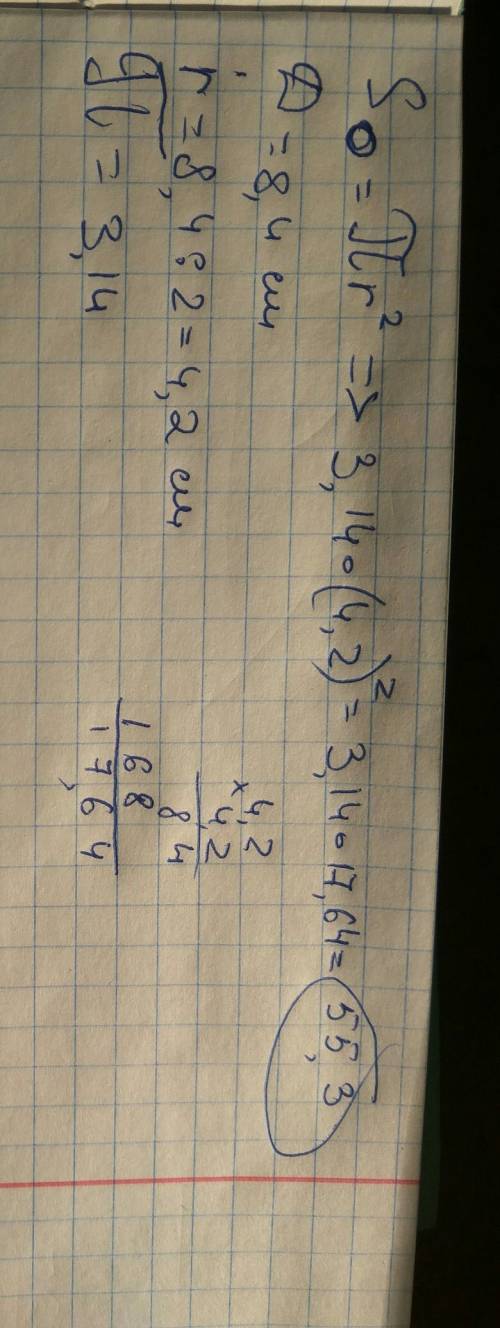 S₀ = πr² => 3,14∘(4,2)² = 3,14∘17,64 = 55,3
D = 8,4 см
r = 8,4 : 2 = 4,2 см
π = 3,14
× 4,2
4,2
84
168
17,64